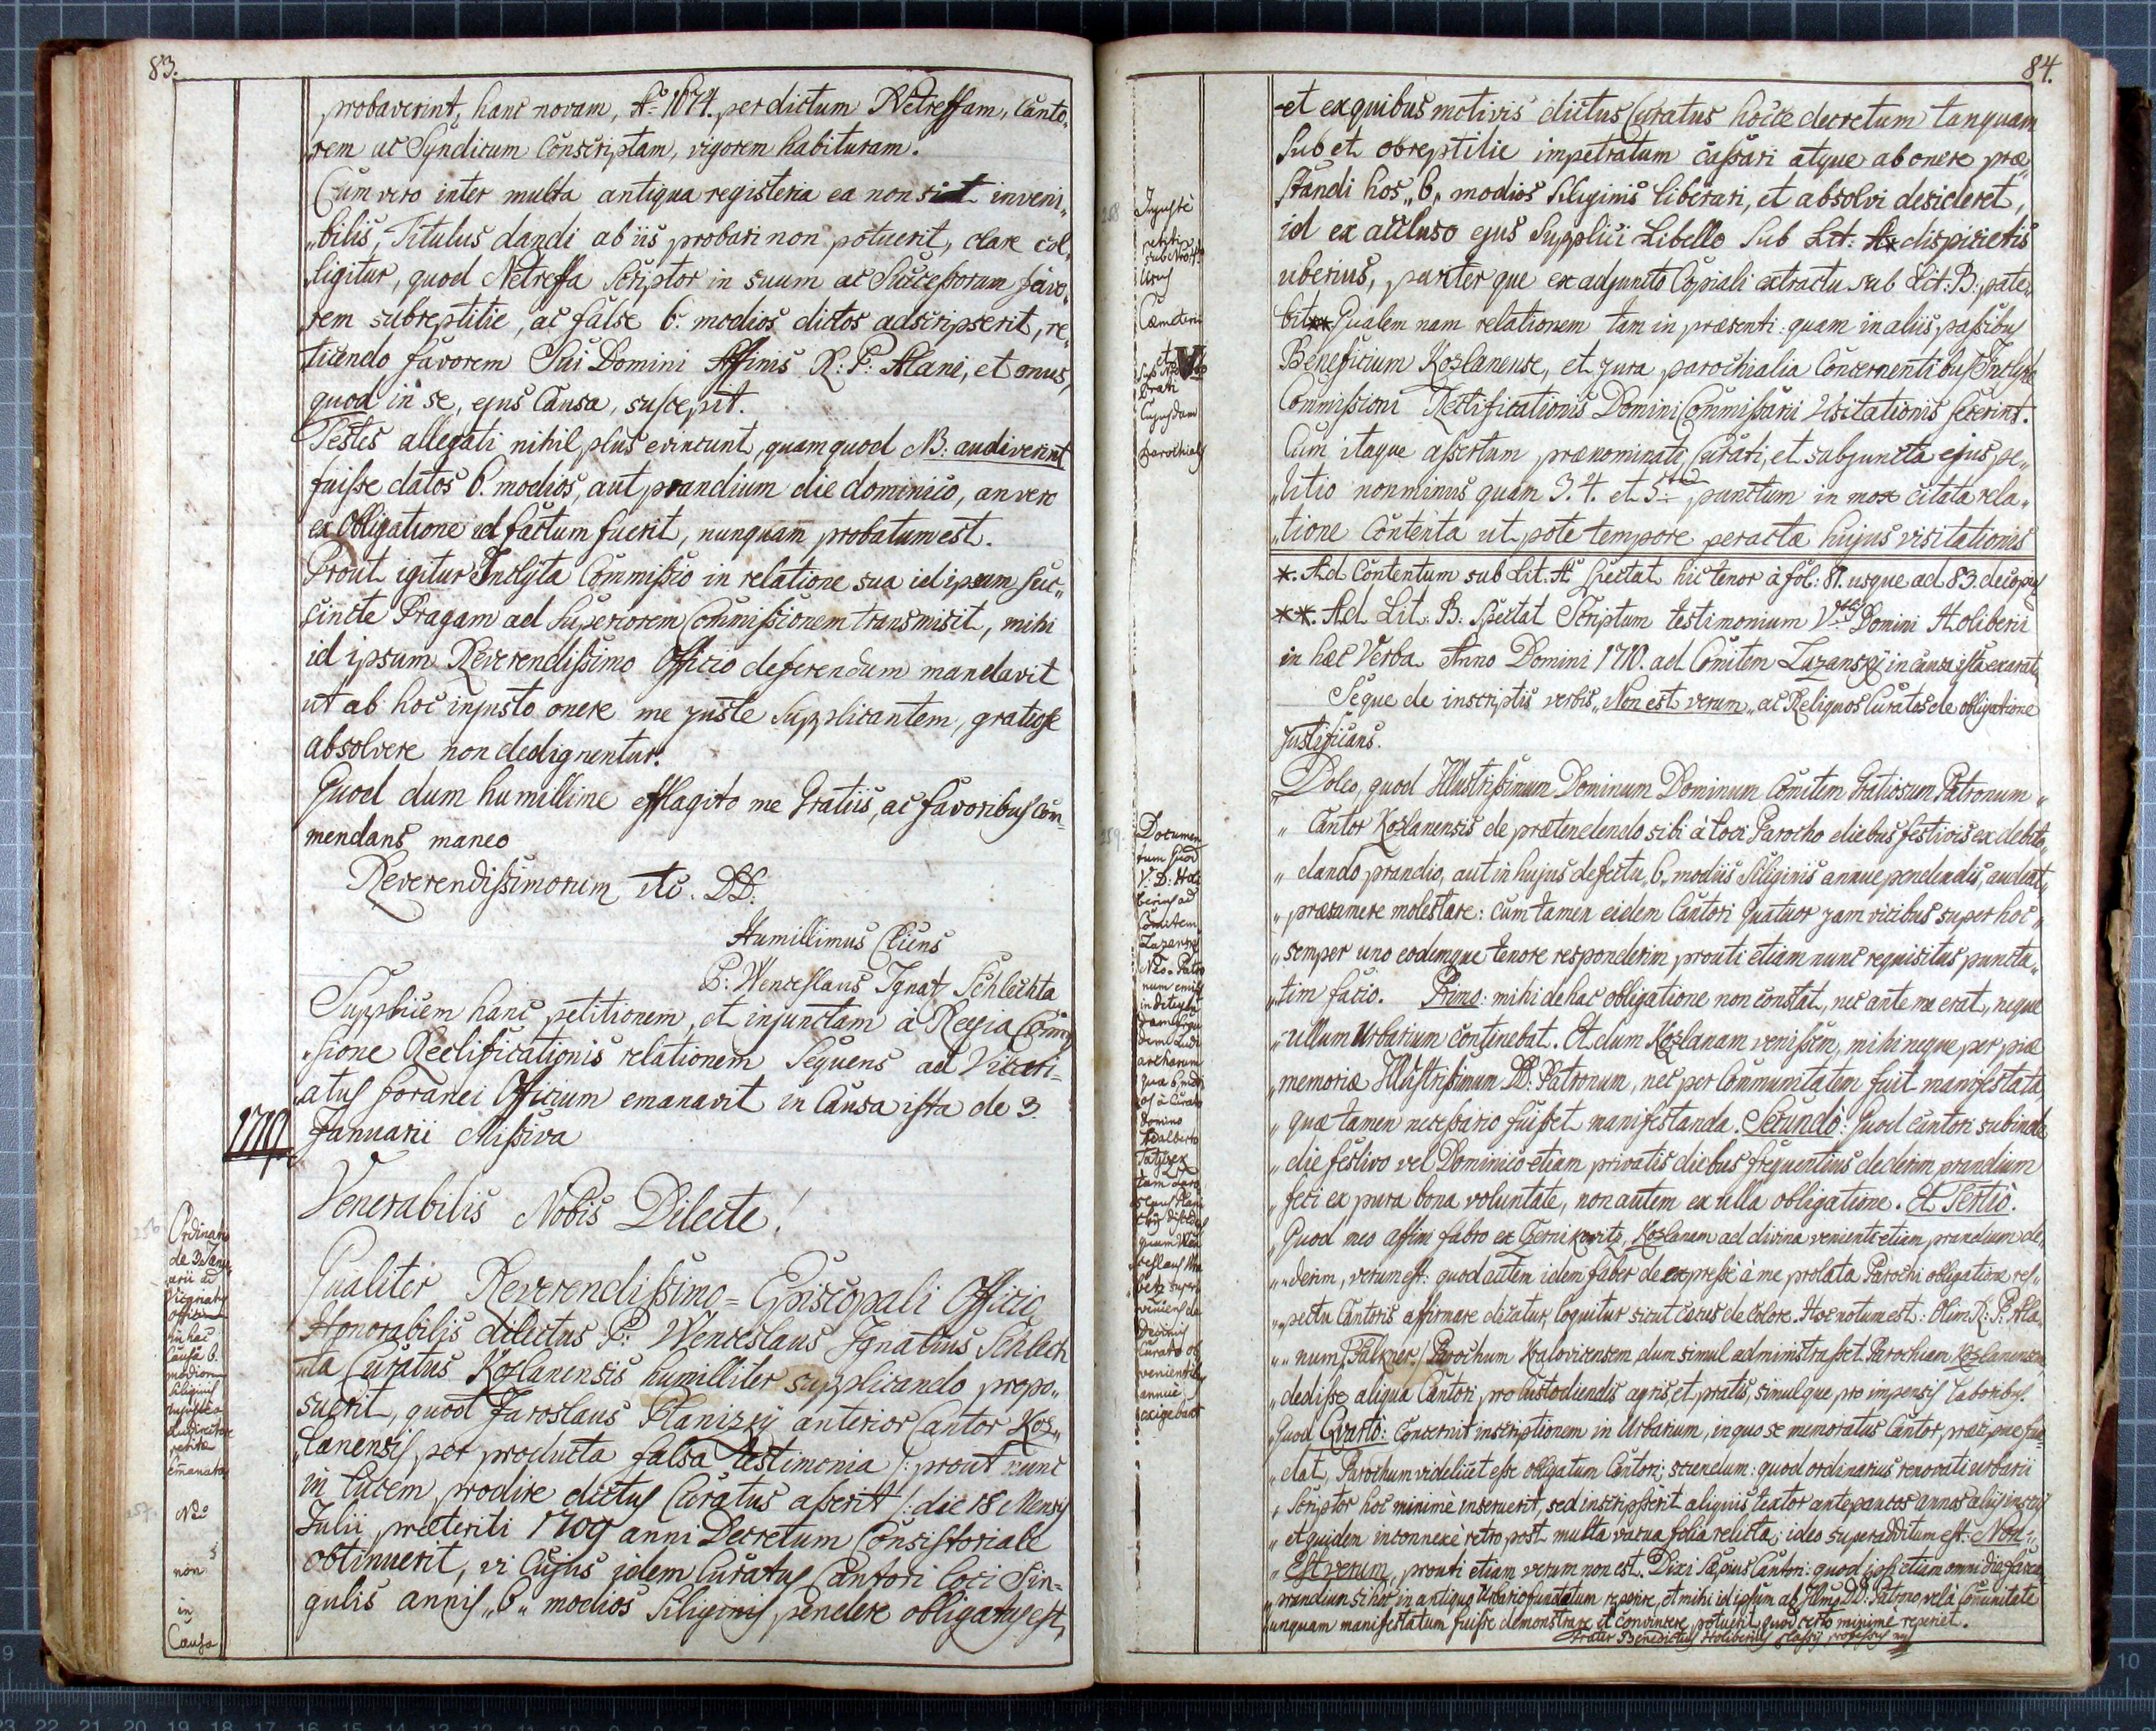 83.
probaverint, hanc novam, Aº 1674. per dictum Netreffam, Canto„
rem ac Syndicum Conscriptam, vigorem habituram.
Cum vero inter multa antiqua registeria ea non sit inveni„
„bilis, Titulus dandi ab iis probari non potuerit, clare col„
ligitur, quod Netreffa Scriptor in suum ac Successorum favo„
rem subreptitie, ac false 6. modios dictos adscripserit, re„
ticendo favorem Sui Domini Affinis R: P: Alani, et onus,
quod in se, ejus Causa, suscepit.
Testes allegati nihil plus evincunt, quam quod NB: audiverint
fuisse datos 6. modios, aut prandium die dominico, an vero
ex Obligatione id factum fuerit, nunquam probatum est.
Prout igitur Inclyta Commissio in relatione sua id ipsum suc„
cincte Pragam ad Superiorem Commissionem transmisit, mihi
id ipsum Reverendissimo Officio deferendum mandavit
ut ab hoc injusto onere me juste Supplicantem, gratiose
absolvere non dedignentur.
Quod dum humillime efflagito me Gratiis, ac favoribus Com-
mendans maneo
Reverendissimorum Ac. DD.
Humillimus Cliens
P. Wenceslaus Ignat Schlechta
Supplicem hanc petitionem, et injunctam à Regia Comis
„sione Rectificationis relationem Sequens ad Vicari-
„atus foranei Officium emanavit in Causa ista de 3
1710. Januarii Missiva
Venerabilis Nobis Dilecte!
Qualiter Reverendissimo = Episcopali Officio
Honorabilis dilectus P. Wenceslaus Ignatius Schlech
„ta Curatus Kozlanensis humilliter supplicando propo„
suerit, quod Jaroslaus Planizky anterior Cantor Koz„
„lanensis per producta falsa testimonia /: prout nunc
in lucem prodire dictus Curatus asserit :/ die 18 Mensis
Julii præteriti 1709 anni Decretum Consistoriale
obtinuerit, vi cujus idem Curatus Cantori loci Sin-
gulis annis „6„ modios Siliginis pendere obligatus est,
Ordinatio
de 3 Janu„
arii ad
Vicariatus
Officium
in hac
Causa 6.
modiorum
Siliginis
emanata
257.
Nº
non
in
Causa
84.
et ex quibus motivis dictus Curatus hocce decretum tanquam
Sub et obreptitie impetratum cassari atque ab onere præ„
standi hos „6„ modios Siliginis liberari, et absolvi desideret,
id ex accluso ejus Supplici Libello Sub Lit: A* dispicietis
uberius, pariter que ex adjuncto Copiali extractu sub Lit: B: pate„
bit** Qualem nam relationem tam in præsenti: quam in aliis passibus
Beneficium Kozlanense, et jura parochialia Concernentibus Inclytæ
Commissioni Rectificationis Domini Commissarii Visitationis fecerint.
Cum itaque assertum prænominati Curati, et subjuncta ejus pe„
„titio non minus quam 3. 4. et 5tum punctum in mox citata rela„
„tione Contenta ut pote tempore peractæ hujus visitationis
*. Ad Contentum sub Lit. A spectat hic tenor à fol: 81. usque ad 83. de copiis
**. Ad Lit. B: Spectat Scriptum testimonium Vdi Domini Holiberii
in hæc Verba Anno Domini 1710. ad Comitem Lazansky in causa ista exarat.
Seque de inscriptis verbis „Non est verum„ ac Reliquos Curatos de obligatione
Justificans.
„Doleo, quod Illustrissimum Dominum Dominum Comitem Gratiosum Patronum„
„ Cantor Kozlanensis de prætendendo sibi à loci Parocho diebus festivis ex debito„
„ dando prandio, aut in hujus defectu „6„ modiis Siliginis annue pendendis, audeat„
„ præsumere molestare: cum tamen eidem Cantori Quatuor jam vicibus super hoc„
„ semper uno eodemque tenore responderim prouti etiam nunc requisitus puncta„
„tim facio. Primo: mihi de hac obligatione non constat, nec ante me erat, neque
„ ullum Urbarium continebat. Et dum Kozlanam venissem, mihi neque per piæ
„ memoriæ Illustrissimum DD: Patronum, nec per Communitatem fuit manifestata
„ quæ tamen necessario fuisset manifestanda. Secundò: Quod Cantori subinde
„ die festivo vel Dominico etiam privatis diebus frequentius dederim prandium
„ feci ex pura bona voluntate, non autem ex ulla obligatione. Et Tertiò:
„ Quod meo affini fabro ex Czernikovitz, Kozlanam ad divina venienti etiam prandium de„
„ derim, verum est: quod autem idem faber de expresse à me prolata Parochi obligatione res„
„ pectu Cantoris affirmare dicatur, loquitur sicut cæcus de colore. Hoc notum est: Olim R: P. Ala„
„ num /Palkner/ Parochum Kralovicensem, dum simul administrasset Parochiam Kozlanensem
„ dedisse aliqua Cantori pro custodiendis agris, et pratis, simulque pro impensis laboribus.
„ Quod Quarto: Concernit inscriptionem in Urbarium, in quo se memoratus Cantor præcipue fun„
„ dat, Parochum videlicet esse obligatum Cantori; sciendum: quod ordinarius renovati urbarii
„ Scriptor hoc minimè inseruerit, sed inscripserit aliquis textor ante paucos annos aliis insciis
„ et quidem inconnexè retro post multa vacua folia relicta; ideo superadditum est: Non
„ Est verum, prouti etiam verum non est. Dixi sæpius Cantori: quod ipsi etiam omni die faciam
„ prandium si hoc in antiquo Urbario fundatum reperire, et mihi id ipsum ab Illmo DD: Patrono vel à Comunitate
unquam manifestatum fuisse demonstrare et convincere potuerit, quod certo minimè reperiet.
Frater Benedictus Holiberius
Cæmeterii
et
Prati
Cujusdam
Parochialis
259.
Documen
tum quod
V. D. Holi
berius ad
Comitem
Lazansky
Domino
Adalberto
annuè
exigebant